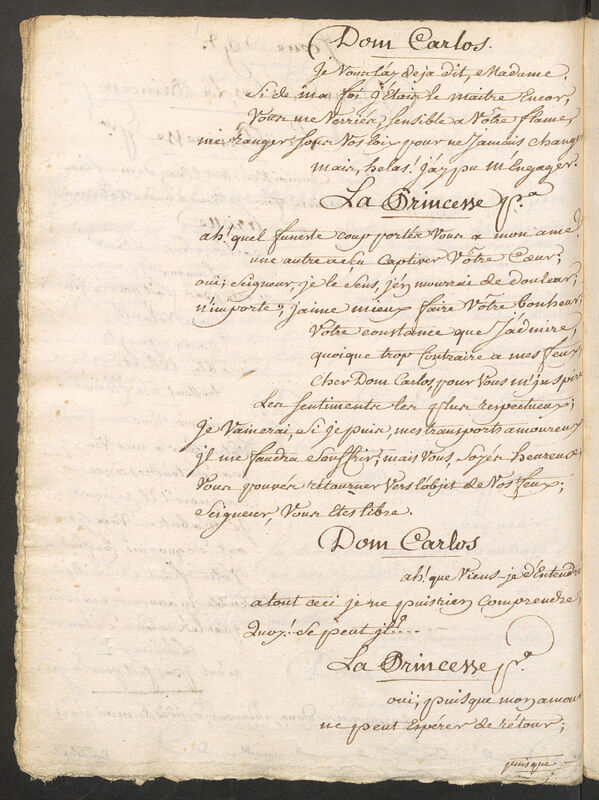 Dom Carlos.
Je Vous l'ay deja dit, Madame,
Si de ma foi j'etois le maitre Encor,
Vous me Verriés sensible a Vôtre flame,
me ranger sous Vos loix pour ne Jamais changer
mais, helas! j'ay pu m'Engager.
La Princesse
ah! quel funeste coup portés Vous a mon ame
une autre a sçu Captiver Vôtre Cœur;
oui, Seigneur, je le sens, j'en mourrai de douleur;
n'importe; j'aime mieux faire Vôtre bonheur,
Votre constance que J'admire,
quoique trop Contraire a mes feux
Cher Dom Carlos, pour Vous m'inspire
Les Sentiments les plus respectueux;
Je Vainerai, si je puis, mes transports amoureux
jl me faudra Souffrir; mais Vous, Soyés heureux
Vous pouvés retourner Vers l'objet de Vos feux;
Seigneur, Vous Etes libre.
Dom Carlos
ah! que Viens-je d'Entendre
a tout ceci je ne puis rien Comprendre,
Quoy! Se peut jl?....
La Princesse
oui, puisque mon amour
ne peut Espérer de rétour;
puisque